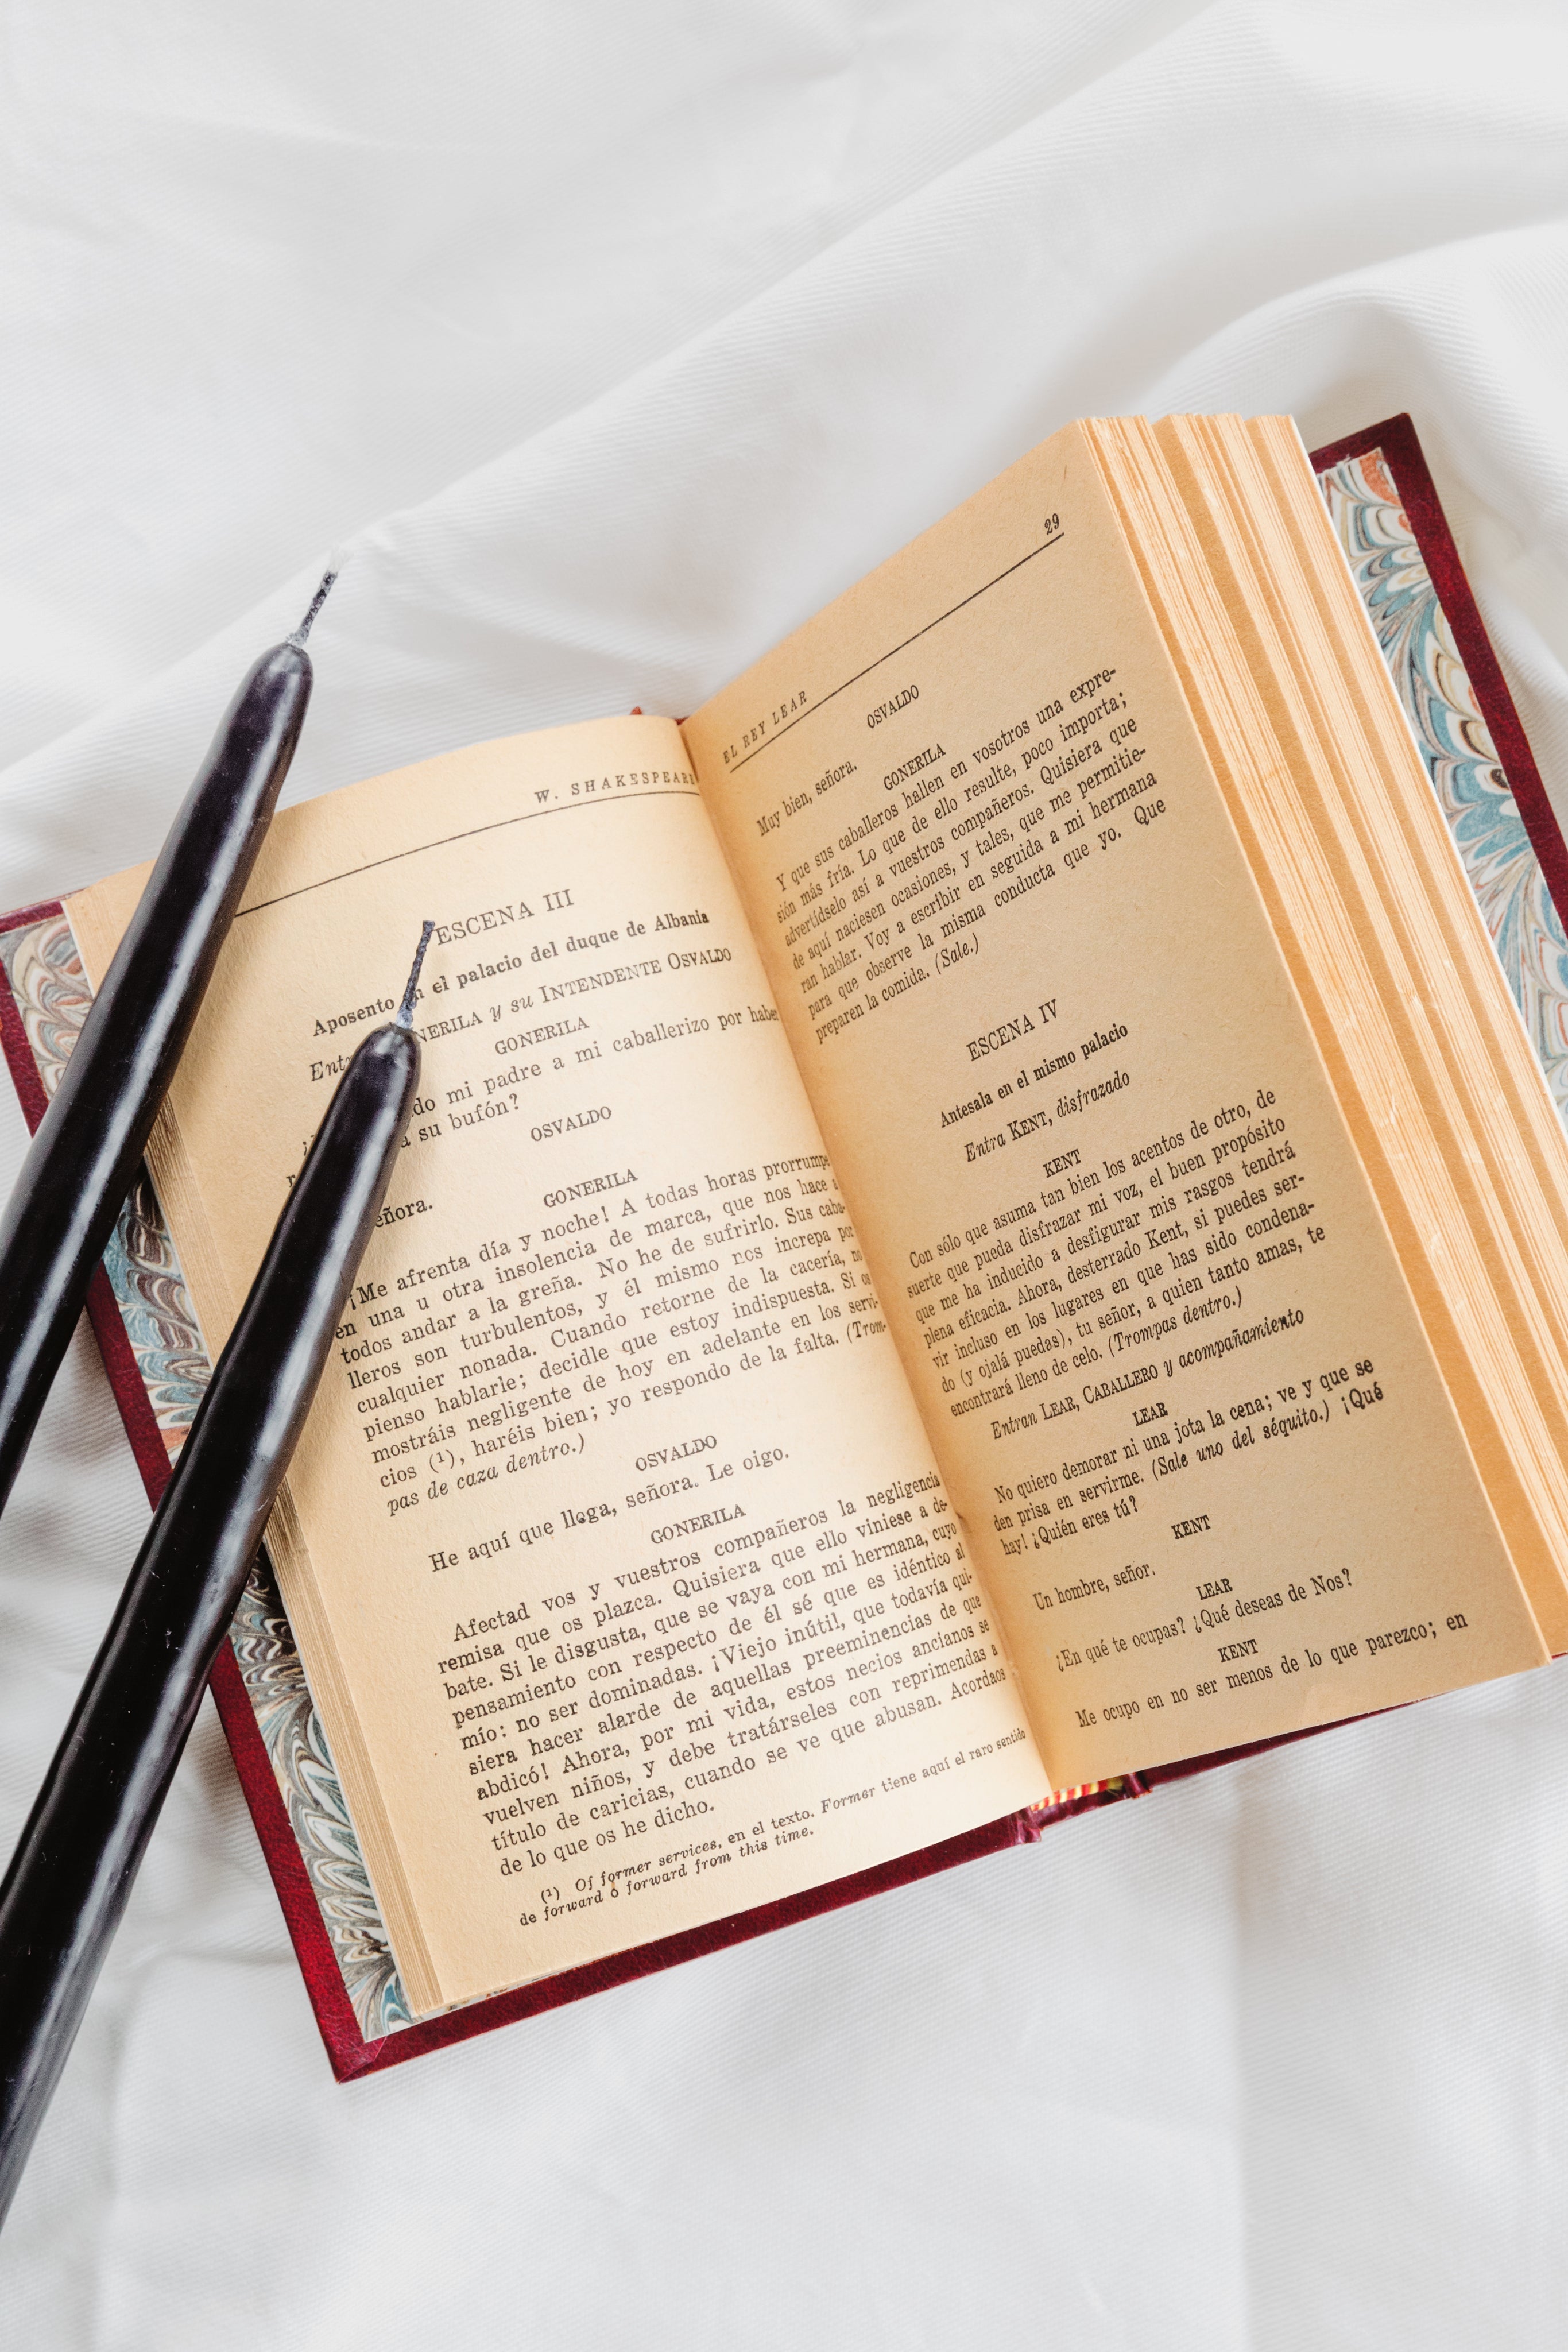 W. SHAKESPEARE
ESCENA III
Aposento en el palacio del duque de Albania
GONERILA y su INTENDENTE OSVALDO
GONERILA
mi padre a mi caballerizo por haber
su bufón?
OSVALDO
señora.
GONERILA
¡Me afrenta día y noche! A todas horas prorrumpe
en una u otra insolencia de marca, que nos hace a
todos andar a la greña. No he de sufrirlo. Sus caba-
lleros son turbulentos, y él mismo nos increpa por
cualquier nonada. Cuando retorne de la cacería, no
pienso hablarle; decidle que estoy indispuesta. Si os
mostráis negligente de hoy en adelante en los servi-
cios (¹), haréis bien; yo respondo de la falta. (Trom-
pas de caza dentro.)
OSVALDO
He aquí que llega, señora. Le oigo.
GONERILA
Afectad vos y vuestros compañeros la negligencia
remisa que os plazca. Quisiera que ello viniese a de-
bate. Si le disgusta, que se vaya con mi hermana, cuyo
pensamiento con respecto de él sé que es idéntico al
mío: no ser dominadas. ¡Viejo inútil, que todavía qui-
siera hacer alarde de aquellas preeminencias de que
abdicó! Ahora, por mi vida, estos necios ancianos se
vuelven niños, y debe tratárseles con reprimendas a
título de caricias, cuando se ve que abusan. Acordaos
de lo que os he dicho.
(¹) Of former services, en el texto. Former tiene aquí el raro sentido
de forward o forward from this time.
EL REY LEAR 29
OSVALDO
Muy bien, señora.
GONERILA
Y que sus caballeros hallen en vosotros una expre-
sión más fría. Lo que de ello resulte, poco importa;
advertídselo así a vuestros compañeros. Quisiera que
de aquí naciesen ocasiones, y tales, que me permitie-
ran hablar. Voy a escribir en seguida a mi hermana
para que observe la misma conducta que yo. Que
preparen la comida. (Sale.)
ESCENA IV
Antesala en el mismo palacio
Entra KENT, disfrazado
KENT
Con sólo que asuma tan bien los acentos de otro, de
suerte que pueda disfrazar mi voz, el buen propósito
que me ha inducido a desfigurar mis rasgos tendrá
plena eficacia. Ahora, desterrado Kent, si puedes ser-
vir incluso en los lugares en que has sido condena-
do (y ojalá puedas), tu señor, a quien tanto amas, te
encontrará lleno de celo. (Trompas dentro.)
Entran LEAR, CABALLERO y acompañamiento
LEAR
No quiero demorar ni una jota la cena; ve y que se
den prisa en servirme. (Sale uno del séquito.) ¡Qué
hay! ¿Quién eres tú?
KENT
Un hombre, señor.
LEAR
¿En qué te ocupas? ¿Qué deseas de Nos?
KENT
Me ocupo en no ser menos de lo que parezco; en